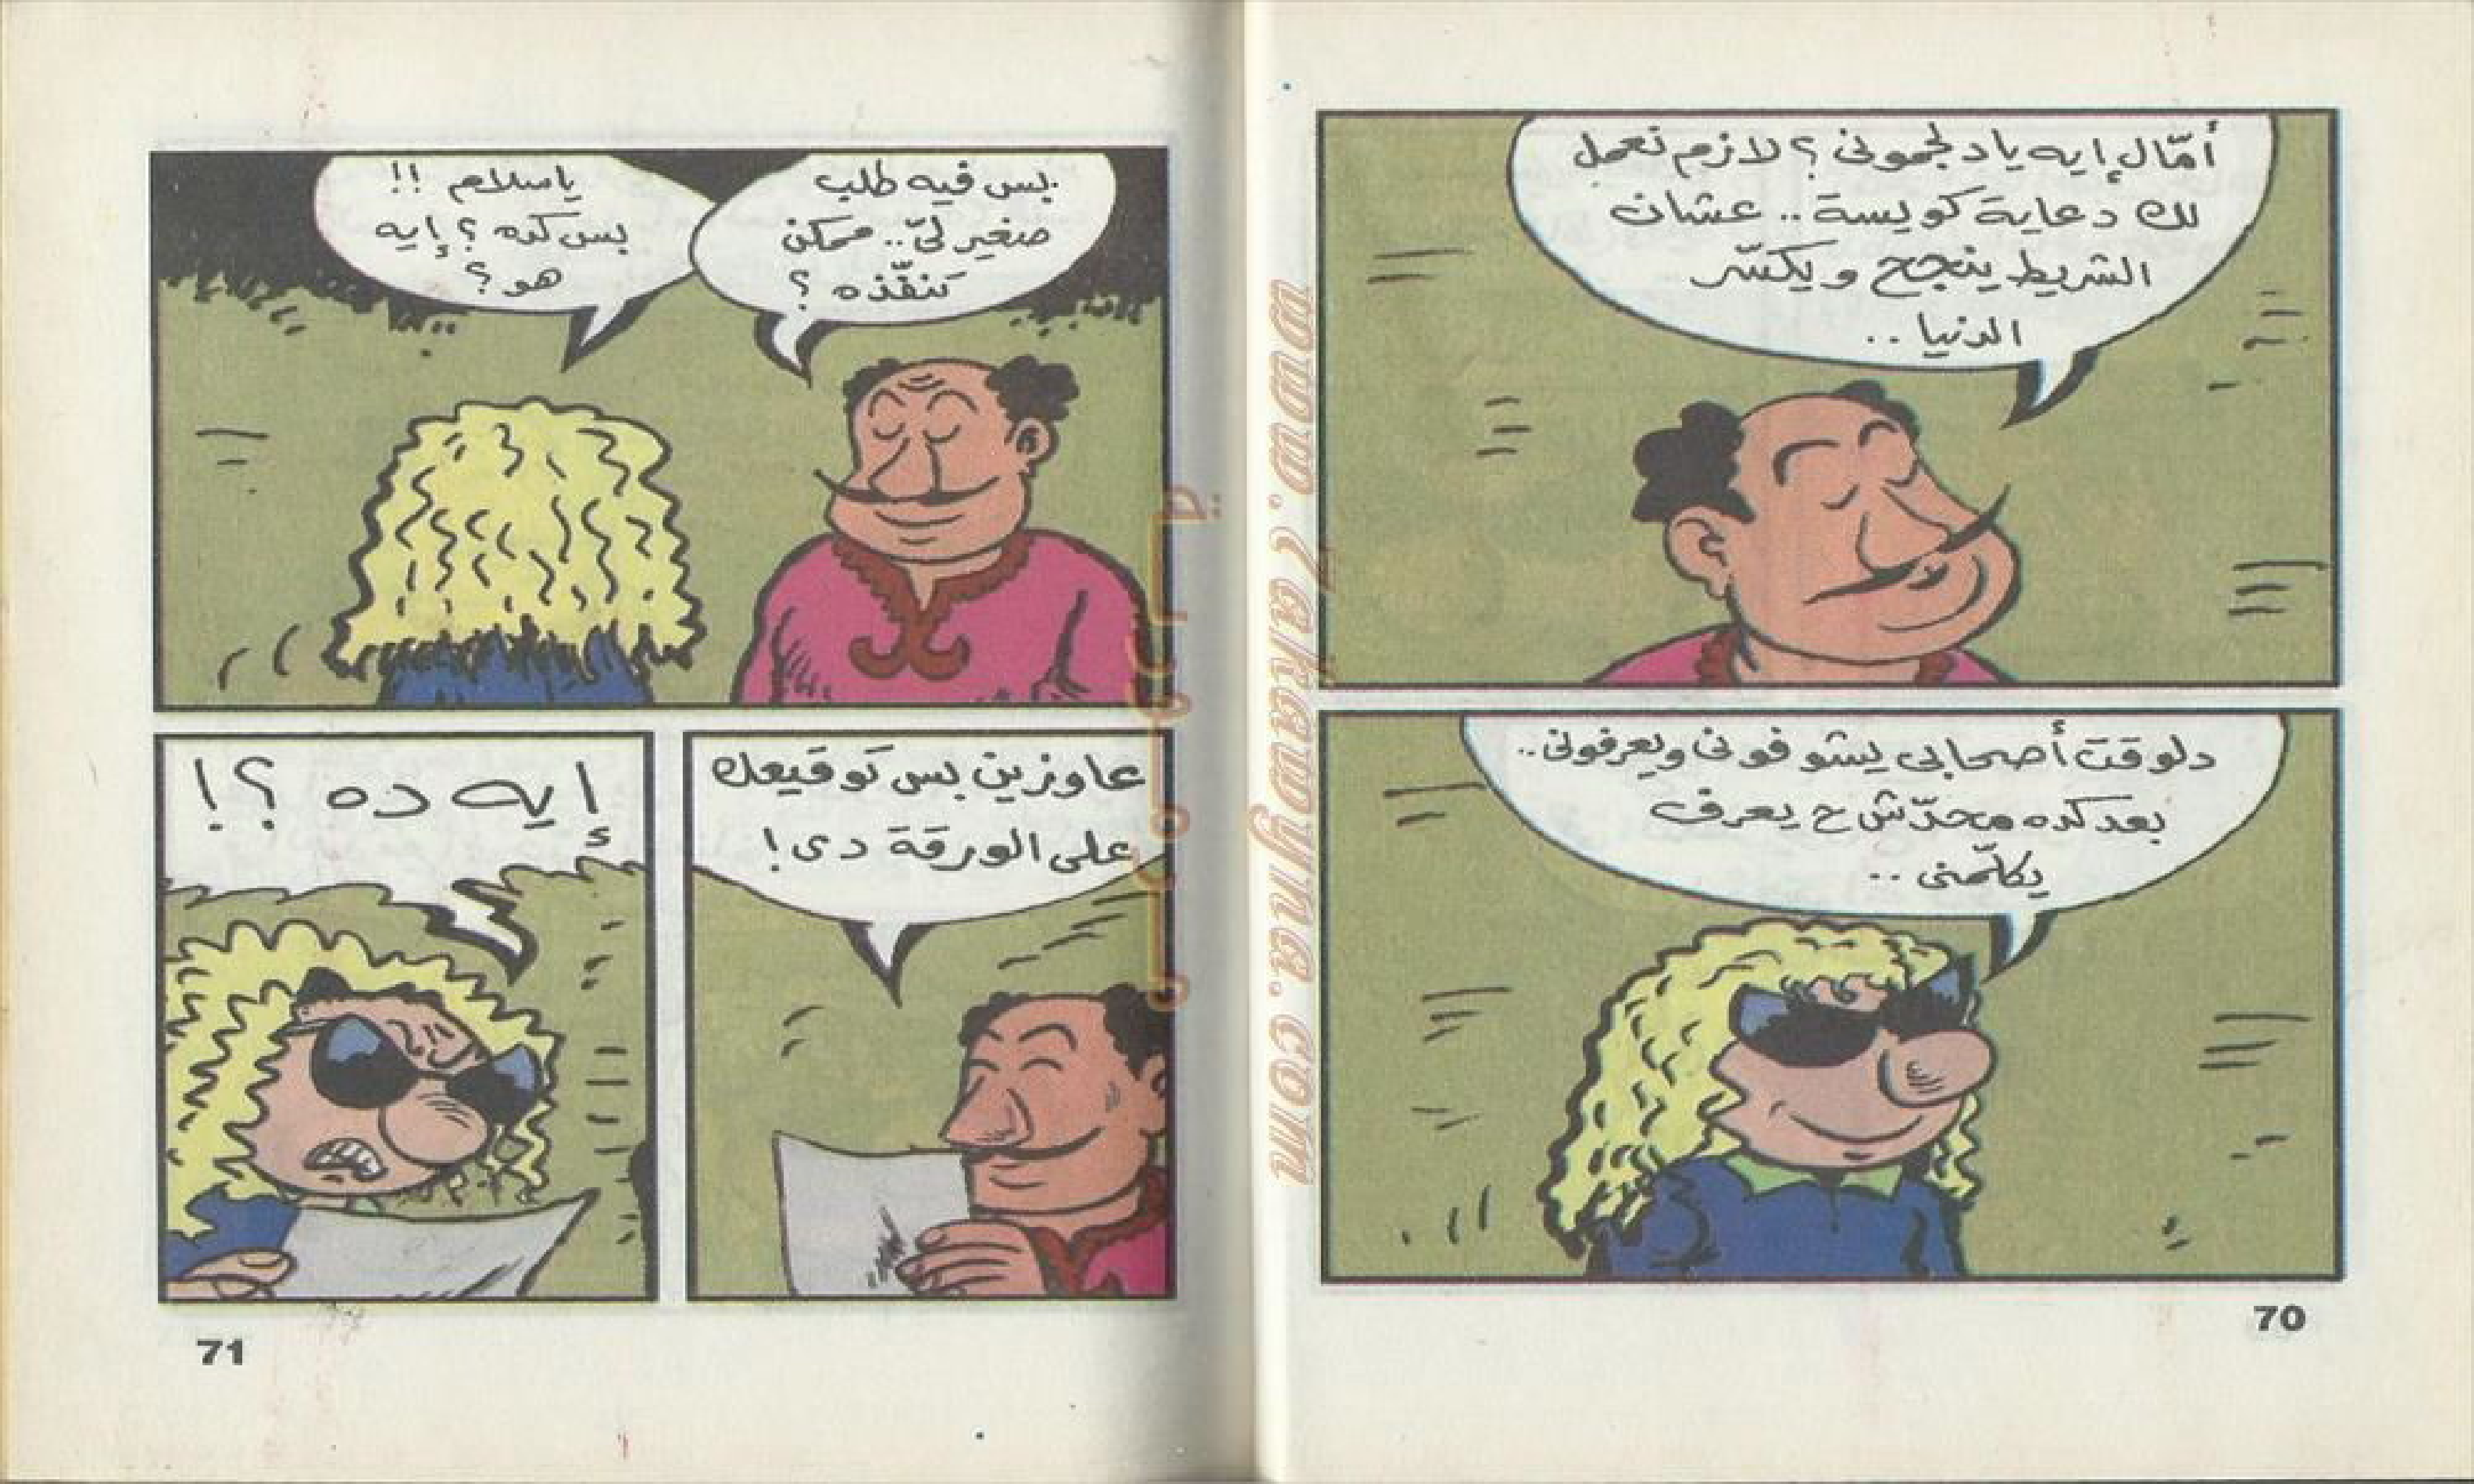 أمّال إيه يا دلجموني؟ لازم نعمل
لك دعاية كويسة.. عشان
الشريط ينجح ويكسّر
الدنيا..
دلوقت أصحابى يشوفونى ويعرفونى..
بعد كده محدّش ح يعرف
يكلّمنى..
70
بس فيه طلب
صغير لىّ.. ممكن
تنفّذه؟
ياسلام!!
بس كده؟ إيه
هو؟
عاوزين بس توقيعك
على الورقة دى!
إيه ده؟!
71
www.7akawyna.com